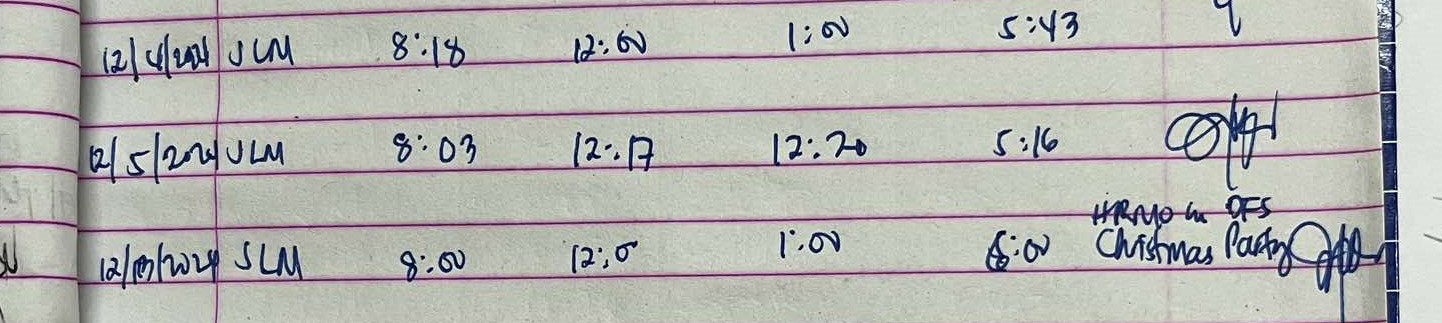 12/4/2024 JLM 8:18 12:00 1:00 5:43
12/5/2024 JLM 8:03 12:17 12:20 5:16
HRMO in OFS
12/13/2024 JLM 8:00 12:0 1:00 5:00 Christmas Party